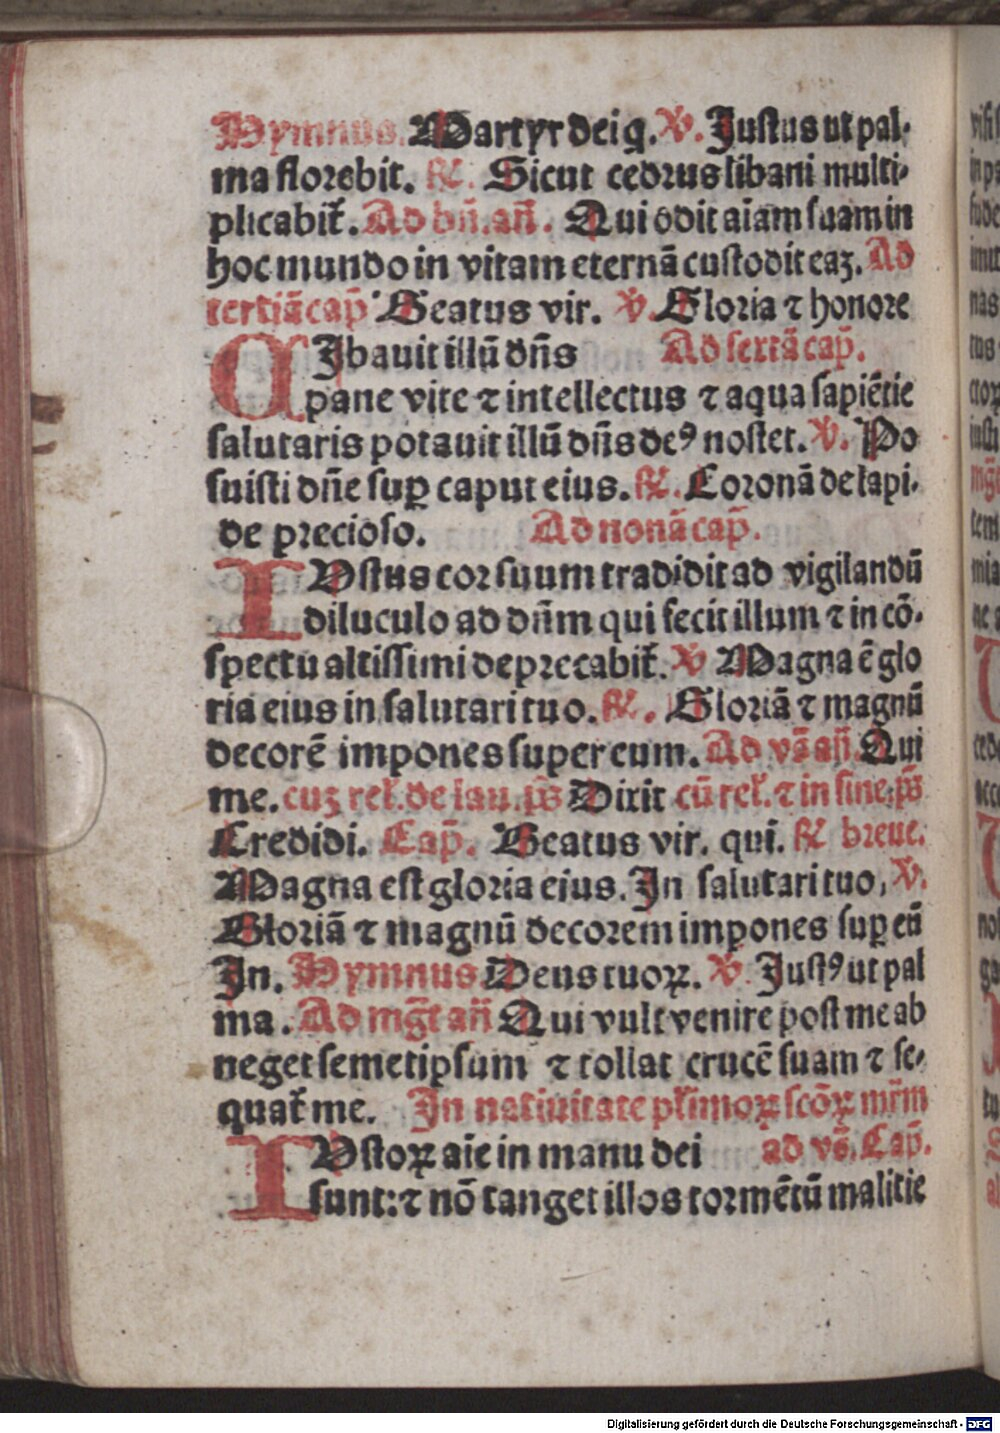 Hymnus. Martyr dei q̄. ℣. Justus ut pal⸗
ma florebit. ℟. Sicut cedrus libani multi⸗
plicabit̉. Ad bn̄. an̄. Qui odit aīam suam in
hoc mundo in vitam eternā custodit eaꝫ. Ad
terciā cap̄ Beatus vir. ℣. Gloria ⁊ honore
CIbauit illū dn̄s Ad sextā cap̄.
pane vite ⁊ intellectus ⁊ aqua sapiētie
salutaris potauit illū dn̄s deꝰ noster. ℣. Po
suisti dn̄e suꝑ caput eius. ℟. Coronā de lapi⸗
de precioso. Ad nonā cap̄.
IUstus cor suum tradidit ad vigilandū
diluculo ad dn̄m qui fecit illum ⁊ in cō⸗
spectu altissimi deprecabit̉. ℣ Magna ē glo
ria eius in salutari tuo. ℟. Gloriā ⁊ magnū
decorē impones super eum. Ad vā an̄. Qui
me. cuꝫ rel̉. de lau. ps̄ Dixit cū rel̉. ⁊ in fine ps̄
Credidi. Cap̄. Beatus vir. qui. ℟ breue.
Magna est gloria eius. In salutari tuo, ℣.
Gloriā ⁊ magnū decorem impones suꝑ eū
In. Hymnus Deus tuoꝝ. ℣. Justꝰ ut pal
ma. Ad mgt̄ an̄ Qui vult venire post me ab
neget semetipsum ⁊ tollat crucē suam ⁊ se⸗
quat̉ me. In natiuitate pl̉imoꝝ scōꝝ mr̄m
IUstoꝝ aīe in manu dei ad vē. Cap̄.
sunt: ⁊ nō tanget illos tormētū malicie
Digitalisierung gefördert durch die Deutsche Forschungsgemeinschaft - DFG